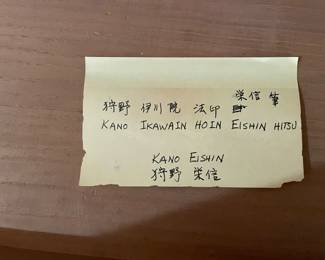 狩野 伊川院 法印 栄信 筆
KANO IKAWAIN HOIN EISHIN HITSU
KANO EISHIN
狩野 栄信